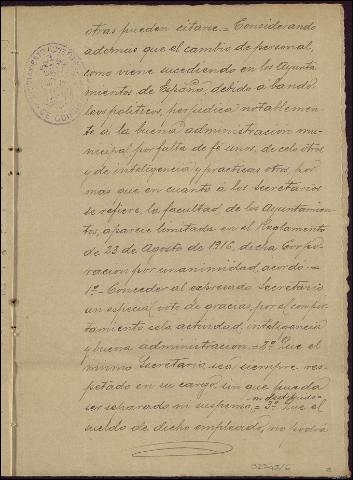 otras pueden citarse.= Considerando
ademas que el cambio de personal,
como viene sucediendo en los Ayunta-
mientos de España, debido á bando
leos politicos, perjudica notablemen-
te á la buena administracion mu-
nicipal por falta de fé unos, de celo otros
y de inteligencia y practicas otros, por
mas que en cuanto á los Secretarios
se refiere, la facultad de los Ayuntamien-
tos, aparece limitada en el Reglamento
de 23 de Agosto de 1916, dicha Corpo-
racion por unanimidad, acordó:=
1º.- Conceder al expresado Secretario
un especial voto de gracias, por el compor-
tamiento celo actividad, inteligencia
y buena administracion.= 2º Que el
mismo Secretario, sea siempre res-
petado en su cargo, sin que pueda
ser separado ni suspenso,= 3º Que el
sueldo de dicho empleado, no podrá